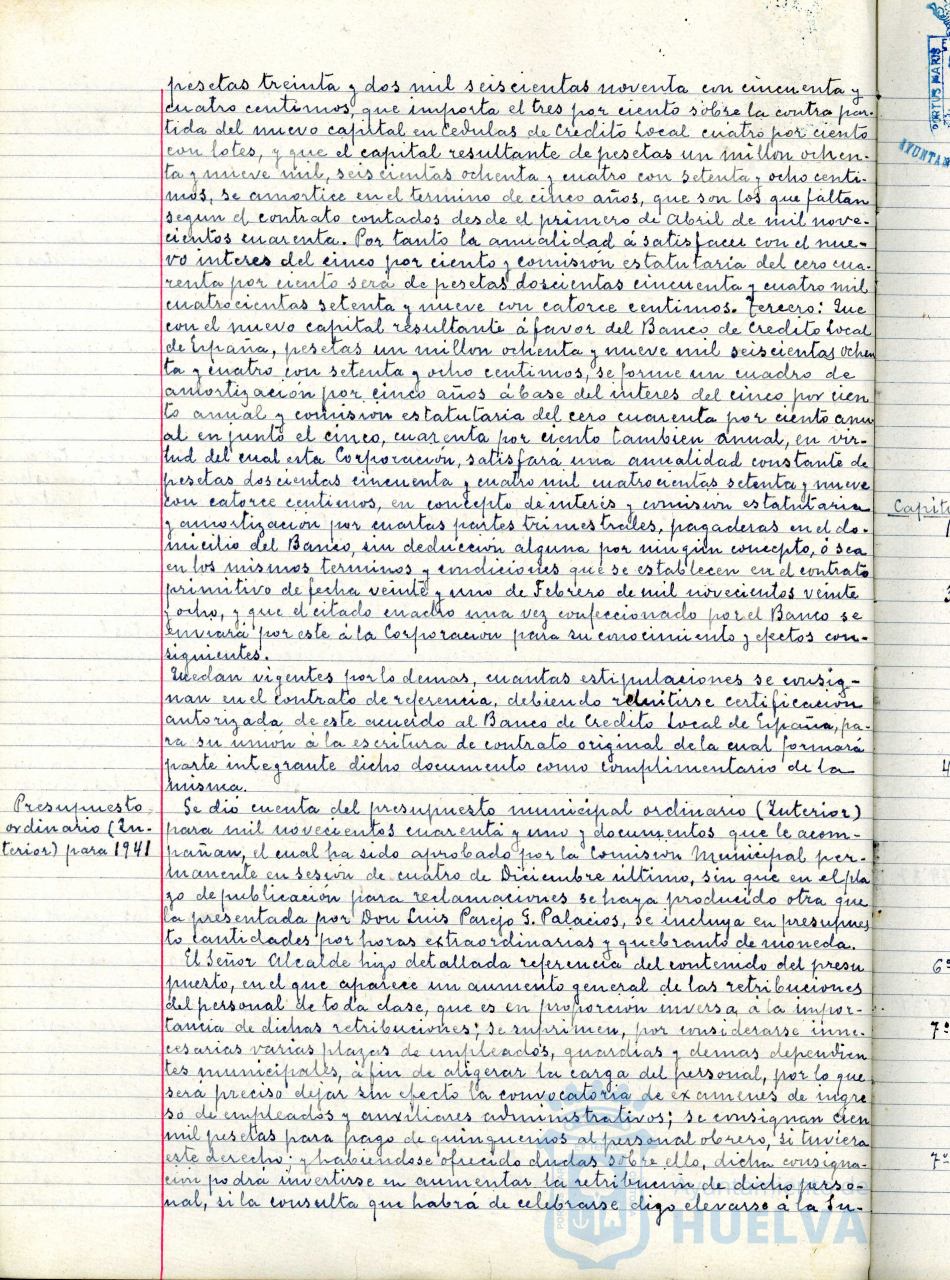 pesetas treinta y dos mil seiscientas noventa con cincuenta y
cuatro centimos, que importa el tres por ciento sobre la contra par-
tida del nuevo capital en Cedulas de Credito Local cuatro por ciento
con lotes, y que el capital resultante de pesetas un millon ochen-
ta y nueve mil, seiscientas ochenta y cuatro con setenta y ocho centi-
mos, se amortice en el termino de cinco años, que son los que faltan
segun el contrato contados desde el primero de Abril de mil nove-
cientos cuarenta. Por tanto la anualidad á satisfacer con el nue-
vo interes del cinco por ciento y comisión estatutaria del cero cua-
renta por ciento será de pesetas doscientas cincuenta y cuatro mil
cuatrocientas setenta y nueve con catorce centimos. Tercero: Que
con el nuevo capital resultante á favor del Banco de Credito Local
de España, pesetas un millon ochenta y nueve mil seiscientas ochen
ta y cuatro con setenta y ocho centimos, se forme un cuadro de
amortización por cinco años á base del interes del cinco por cien
to anual y comisión estatutaria del cero cuarenta por ciento anu
al en junto el cinco, cuarenta por ciento tambien anual, en vir-
tud del cual esta Corporación, satisfará una anualidad constante de
pesetas doscientas cincuenta y cuatro mil cuatrocientas setenta y nueve
con catorce centimos, en concepto de interés y comisión estatutaria
y amortización por cuartas partes trimestrales, pagaderas en el do-
micilio del Banco, sin deducción alguna por ningún concepto, ó sea
en los mismos terminos y condiciones que se establecen en el contrato
primitivo de fecha veinte y uno de Febrero de mil novecientos veinte
y ocho, y que el citado cuadro una vez confeccionado por el Banco se
enviará por este á la Corporación para su conocimiento y efectos con-
siguientes.
Quedan vigentes por lo demas, cuantas estipulaciones se consig-
nan en el contrato de referencia, debiendo remitirse certificación
autorizada de este acuerdo al Banco de Credito Local de España, pa-
ra su unión á la escritura de contrato original de la cual formará
parte integrante dicho documento como complimentario de la
misma.
Presupuesto
ordinario (In-
terior) para 1941
Se dió cuenta del presupuesto municipal ordinario (Interior)
para mil novecientos cuarenta y uno y documentos que le acom-
pañan, el cual ha sido aprobado por la Comisión Municipal per-
manente en sesion de cuatro de Diciembre ultimo, sin que en el pla
zo de publicación para reclamaciones se haya producido otra que
la presentada por Don Luis Parejo G. Palacios, se incluya en presupues
to cantidades por horas extraordinarias y quebranto de moneda.
El Señor Alcalde hizo detallada referencia del contenido del presu
puesto, en el que aparece un aumento general de las retribuciones
del personal de toda clase, que es en proporción inversa, á la impor-
tancia de dichas retribuciones; se suprimen, por considerarse inne-
cesarias varias plazas de empleados, guardias y demas dependien
tes municipales, á fin de aligerar la carga del personal, por lo que
será preciso dejar sin efecto la convocatoria de examenes de ingre
so de empleados y auxiliares administrativos; se consignan cien
mil pesetas para pago de quinquenios al personal obrero, si tuviera
este derecho; y habiendose ofrecido dudas sobre ello, dicha consigna-
cion podrá invertirse en aumentar la retribucion de dicho perso-
nal, si la consulta que habrá de celebrarse digo elevarse á la Su-
Ayuntamiento de
HUELVA
PORTUS MARIS
AYUNTAM
Capítu
1
3
4
6º
7º
7º